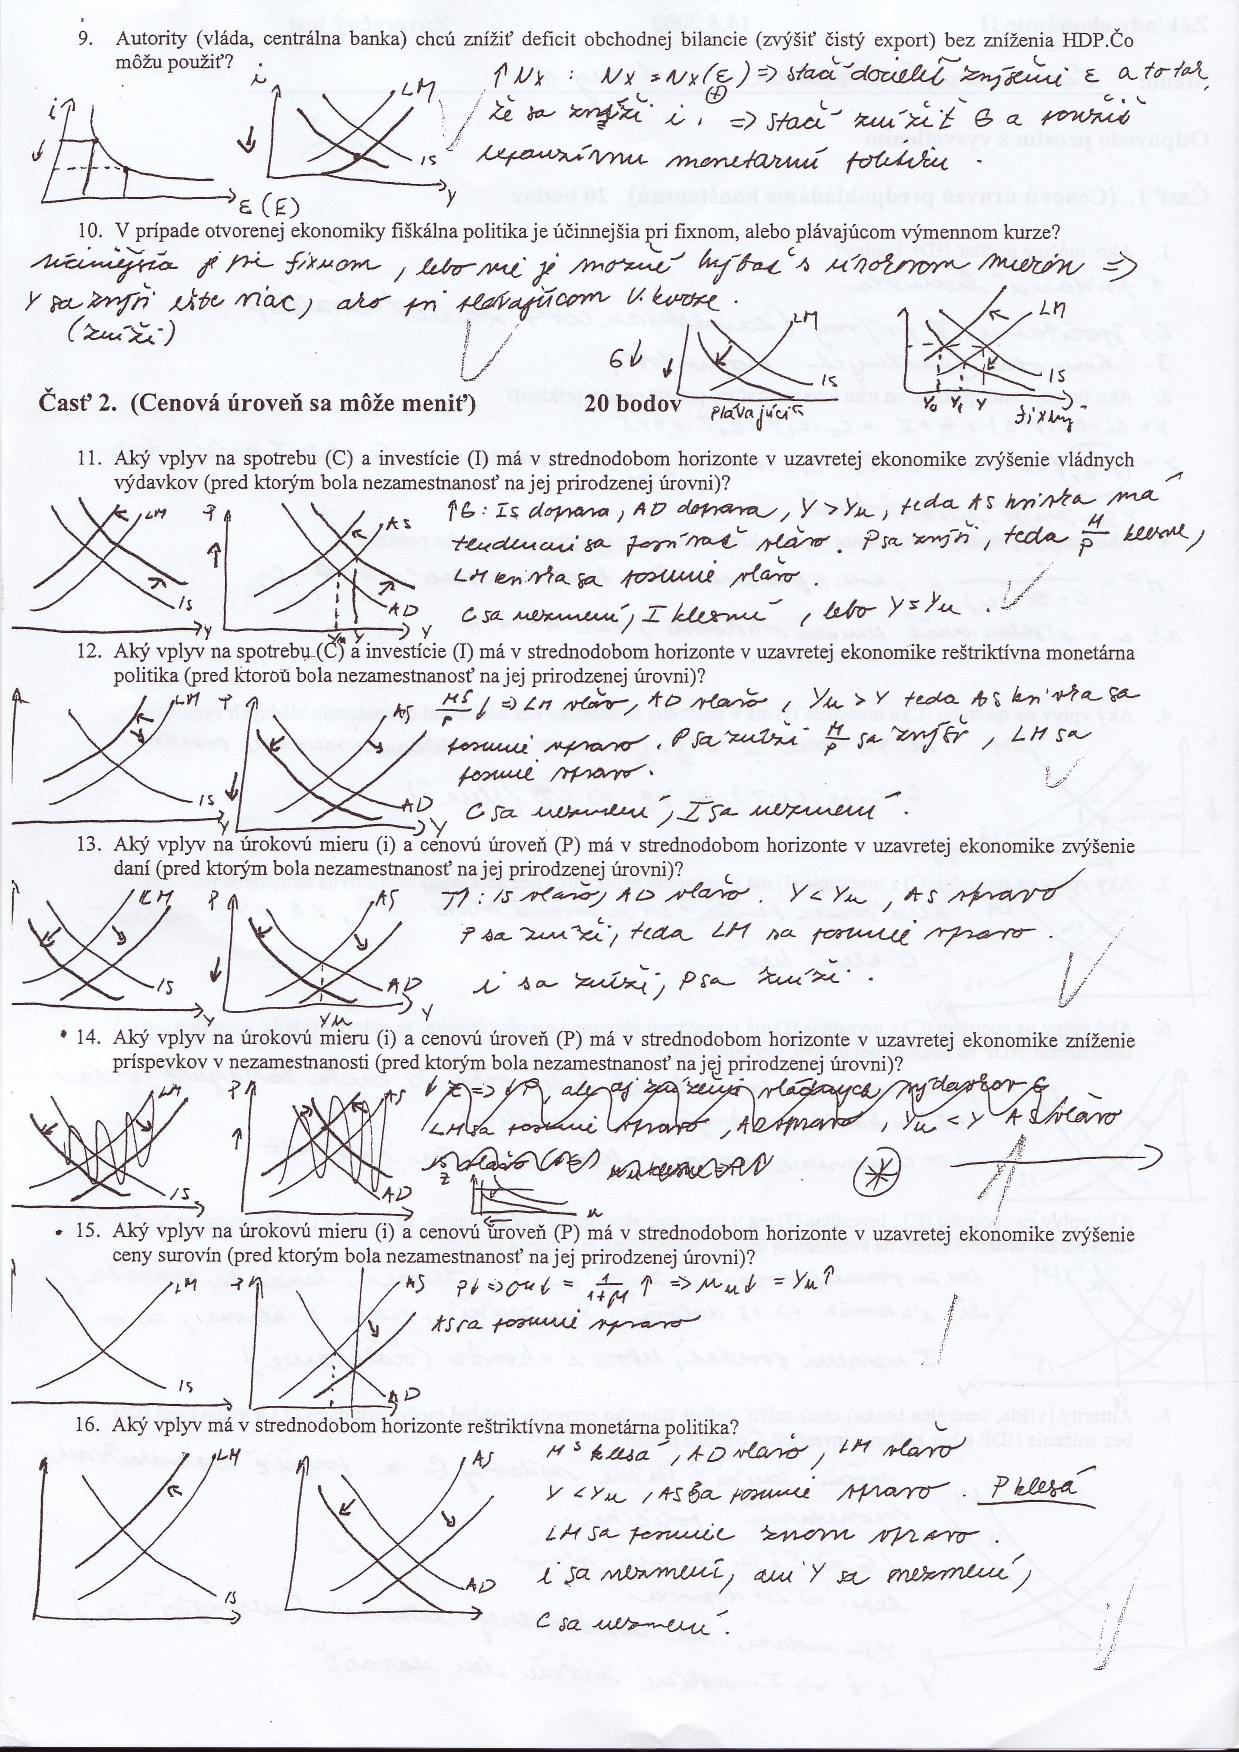 9. Autority (vláda, centrálna banka) chcú znížiť deficit obchodnej bilancie (zvýšiť čistý export) bez zníženia HDP.Čo
môžu použiť?
↑ NX : NX = NX(ε) => stačí docieliť zvýšenie ε a to tak,
⊕
že sa zníži i, => stačí znížiť G a použiť
expanzívnu monetárnu politiku.
i
ε (E)
LM
IS
Y
10. V prípade otvorenej ekonomiky fiškálna politika je účinnejšia pri fixnom, alebo plávajúcom výmennom kurze?
účinnejšia je pri fixnom, lebo nie je možné hýbať s úrokovou mierou =>
Y sa zvýši ešte viac, ako pri plávajúcom v. kurze.
(zníži)
G↓
LM
IS
plávajúci
LM
IS
Y₀ Y₁ Y
fixný
Časť 2. (Cenová úroveň sa môže meniť) 20 bodov
11. Aký vplyv na spotrebu (C) a investície (I) má v strednodobom horizonte v uzavretej ekonomike zvýšenie vládnych
výdavkov (pred ktorým bola nezamestnanosť na jej prirodzenej úrovni)?
LM
IS
Y
P
AS
AD
Yn Y
Y
↑G : IS doprava, AD doprava, Y > Yn, teda AS krivka má
tendenciu sa posúvať vľavo. P sa zvýši, teda M/P klesne,
LM krivka sa posunie vľavo.
C sa nezmení, I klesne, lebo Y = Yn.
12. Aký vplyv na spotrebu (C) a investície (I) má v strednodobom horizonte v uzavretej ekonomike reštriktívna monetárna
politika (pred ktorou bola nezamestnanosť na jej prirodzenej úrovni)?
LM
IS
Y
P
AS
AD
Y
MS/P ↓ => LM vľavo, AD vľavo, Yn > Y teda AS krivka sa
posunie vpravo. P sa zníži M/P sa zvýši, LM sa
posunie vpravo.
C sa nezmení, I sa nezmení.
13. Aký vplyv na úrokovú mieru (i) a cenovú úroveň (P) má v strednodobom horizonte v uzavretej ekonomike zvýšenie
daní (pred ktorým bola nezamestnanosť na jej prirodzenej úrovni)?
LM
IS
Y
P
AS
AD
Yn
Y
T↑ : IS vľavo, AD vľavo. Y < Yn, AS vpravo
P sa zníži, teda LM sa posunie vpravo.
i sa zníži, P sa zníži.
14. Aký vplyv na úrokovú mieru (i) a cenovú úroveň (P) má v strednodobom horizonte v uzavretej ekonomike zníženie
príspevkov v nezamestnanosti (pred ktorým bola nezamestnanosť na jej prirodzenej úrovni)?
LM
IS
P
AS
AD
↓ z => ↓P, ale aj zníženie vládnych výdavkov G
LM sa posunie vpravo, AD vpravo, Yn < Y AS vľavo
u
15. Aký vplyv na úrokovú mieru (i) a cenovú úroveň (P) má v strednodobom horizonte v uzavretej ekonomike zvýšenie
ceny surovín (pred ktorým bola nezamestnanosť na jej prirodzenej úrovni)?
LM
IS
P
AS
AD
= 1/1+μ ↑ => un↓ = Yn↑
AS sa posunie vpravo
16. Aký vplyv má v strednodobom horizonte reštriktívna monetárna politika?
LM
IS
AS
AD
MS klesá, AD vľavo, LM vľavo
Y < Yn, AS sa posunie vpravo. P klesá
LM sa posunie znova vpravo.
i sa nezmení, ani Y sa nezmení,
C sa nezmení.